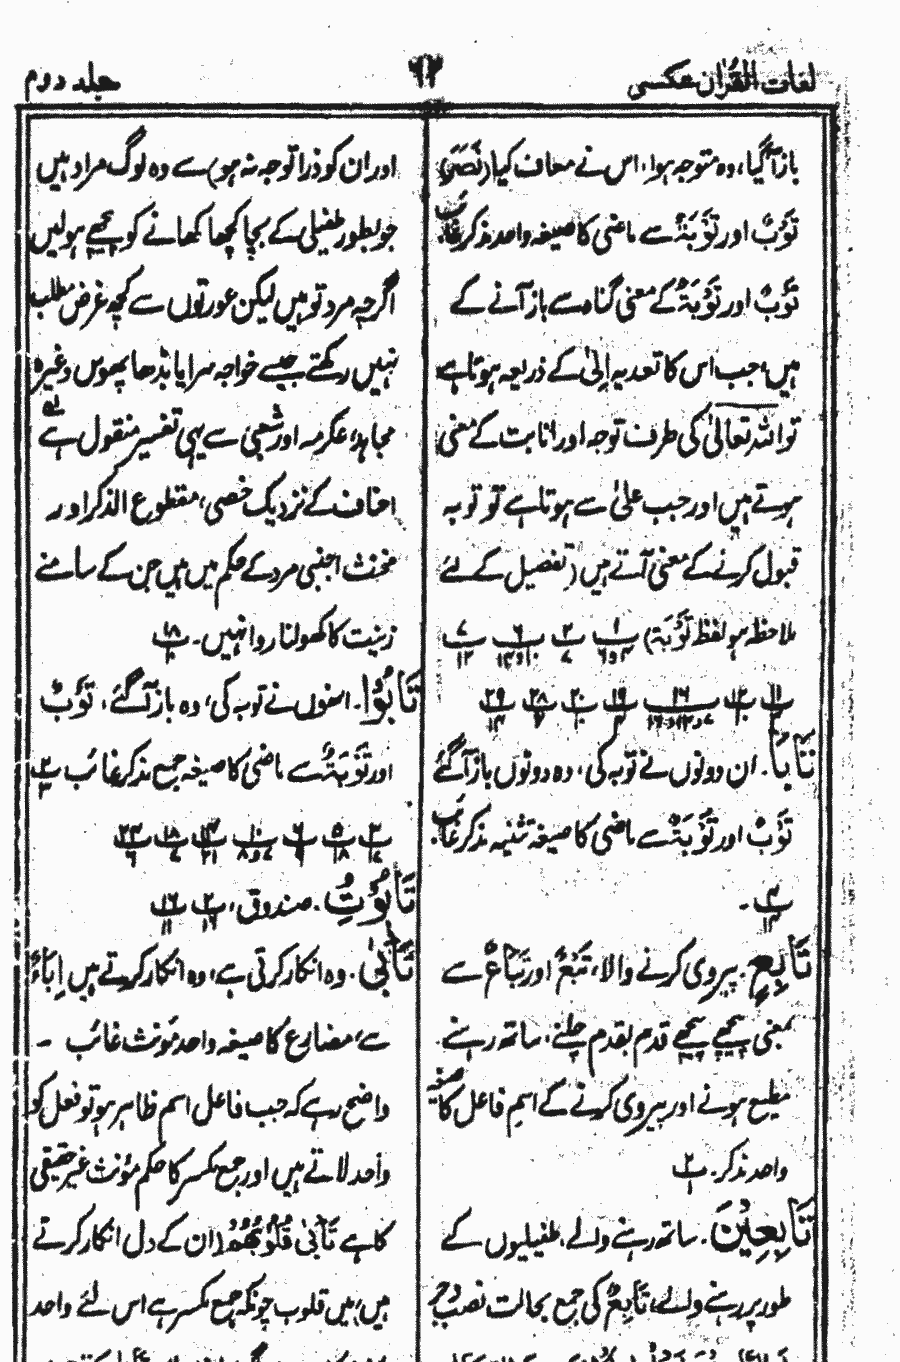 لغات القرآن عکسی
۹۲
جلد دوم
باز آگیا، وہ متوجہ ہوا، اس نے معاف کیا (نَصَرَ)
تَوْبٌ اور تَوْبَۃٌ سے ماضی کا صیغہ واحد مذکر غائب
تَوْبٌ اور تَوْبَۃٌ کے معنی گناہ سے باز آنے کے
ہیں، جب اس کا تعدیہ اِلیٰ کے ذریعہ ہوتا ہے
تو اللہ تعالیٰ کی طرف توجہ اور انابت کے معنی
ہوتے ہیں اور جب علیٰ سے ہوتا ہے تو توبہ
قبول کرنے کے معنی آتے ہیں (تفصیل کے لئے
ملاحظہ ہو لفظ تَوْبَۃ)
تَابَا. ان دونوں نے توبہ کی، وہ دونوں باز آگئے
تَوْبٌ اور تَوْبَۃٌ سے ماضی کا صیغہ تثنیہ مذکر غائب
تَابِعٍ. پیروی کرنے والا، تَبَعٌ اور تَبَاعٌ سے
بمعنی پیچھے پیچھے قدم بقدم چلنے، ساتھ رہنے،
مطیع ہونے اور پیروی کرنے کے اسم فاعل کا صیغہ
واحد مذکر.
تَابِعِیْنَ. ساتھ رہنے والے، طفیلیوں کے
طور پر رہنے والے، تَابِعٌ کی جمع بحالت نصب و جر
اور ان کو ذرا توجہ نہ ہو) سے وہ لوگ مراد ہیں
جو بطور طفیلی کے بچا کھچا کھانے کو پیچھے ہولیں
اگرچہ مرد تو ہیں لیکن عورتوں سے کچھ غرض مطلب
نہیں رکھتے جیسے خواجہ سرا یا بڈھا پھوس وغیرہ
مجاہد، عکرمہ اور شعبی سے یہی تفسیر منقول ہے
احناف کے نزدیک خصی، مقطوع الذکر اور
مخنث اجنبی مرد کے حکم میں ہیں جن کے سامنے
زینت کا کھولنا روا نہیں۔ ۱۸
تَابُوْا. انھوں نے توبہ کی، وہ باز آگئے، تَوْبٌ
اور تَوْبَۃٌ سے ماضی کا صیغہ جمع مذکر غائب
تَابُوْتُ. صندوق،
تَاْبٰی. وہ انکار کرتی ہے، وہ انکار کرتے ہیں اِبَاءٌ
سے، مضارع کا صیغہ واحد مؤنث غائب -
واضح رہے کہ جب فاعل اسم ظاہر ہو تو فعل کو
واحد لاتے ہیں اور جمع مکسر کا حکم مؤنث غیر حقیقی
کا ہے تَاْبٰی قُلُوْبُهُمْ (ان کے دل انکار کرتے
ہیں، میں قلوب چونکہ جمع مکسر ہے اس لئے واحد